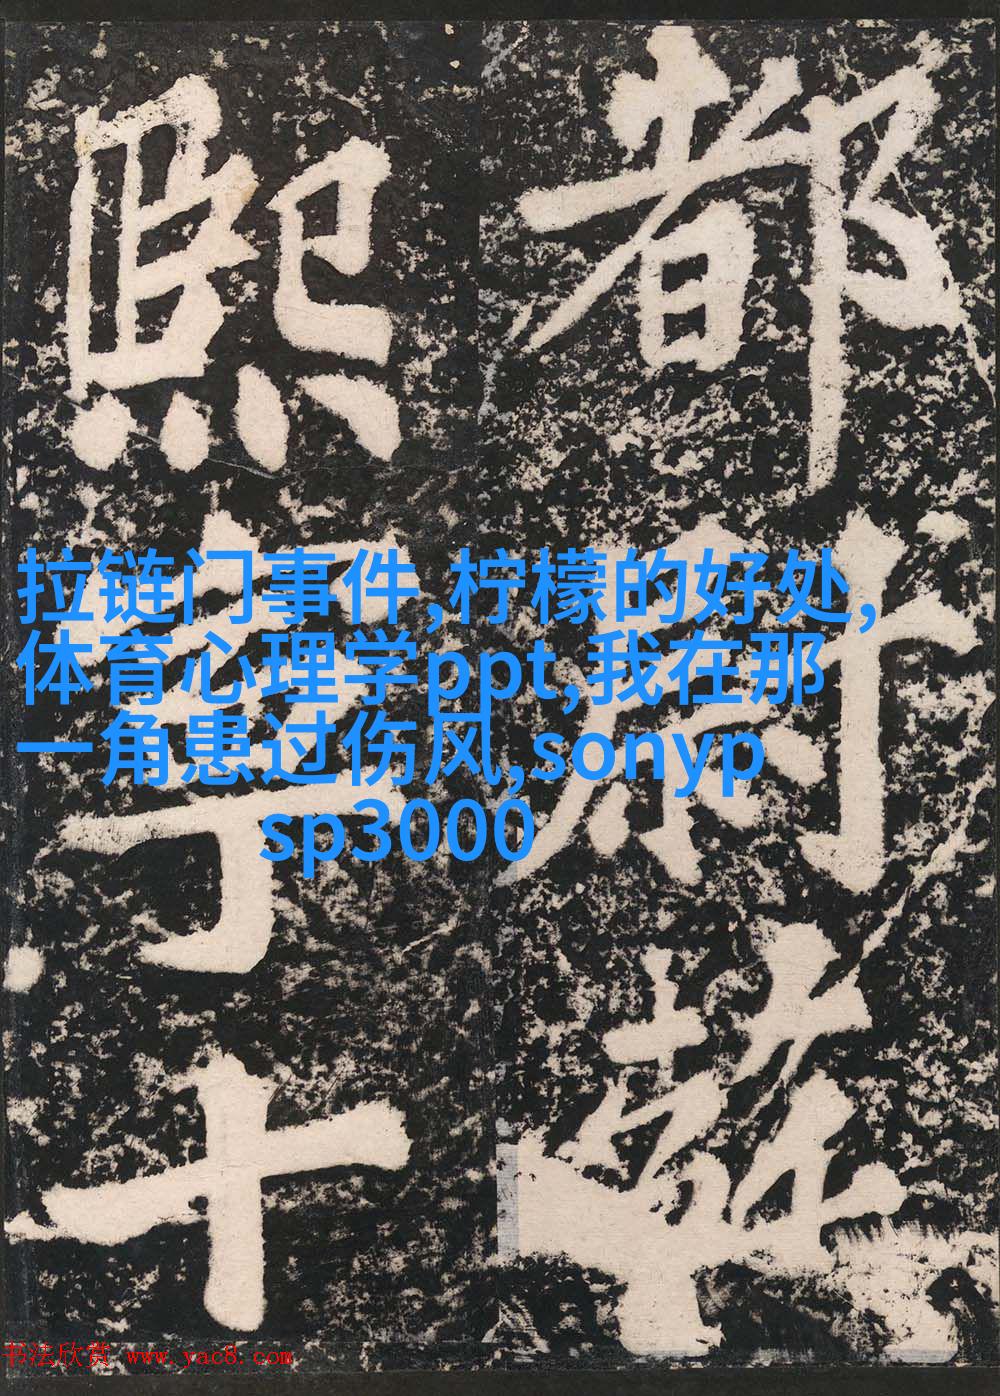 都尉
熙寧十
拉链门事件,柠檬的好处,
体育心理学ppt,我在那
一角患过伤风,sonyp
sp3000
书法欣赏 www.yac8.com